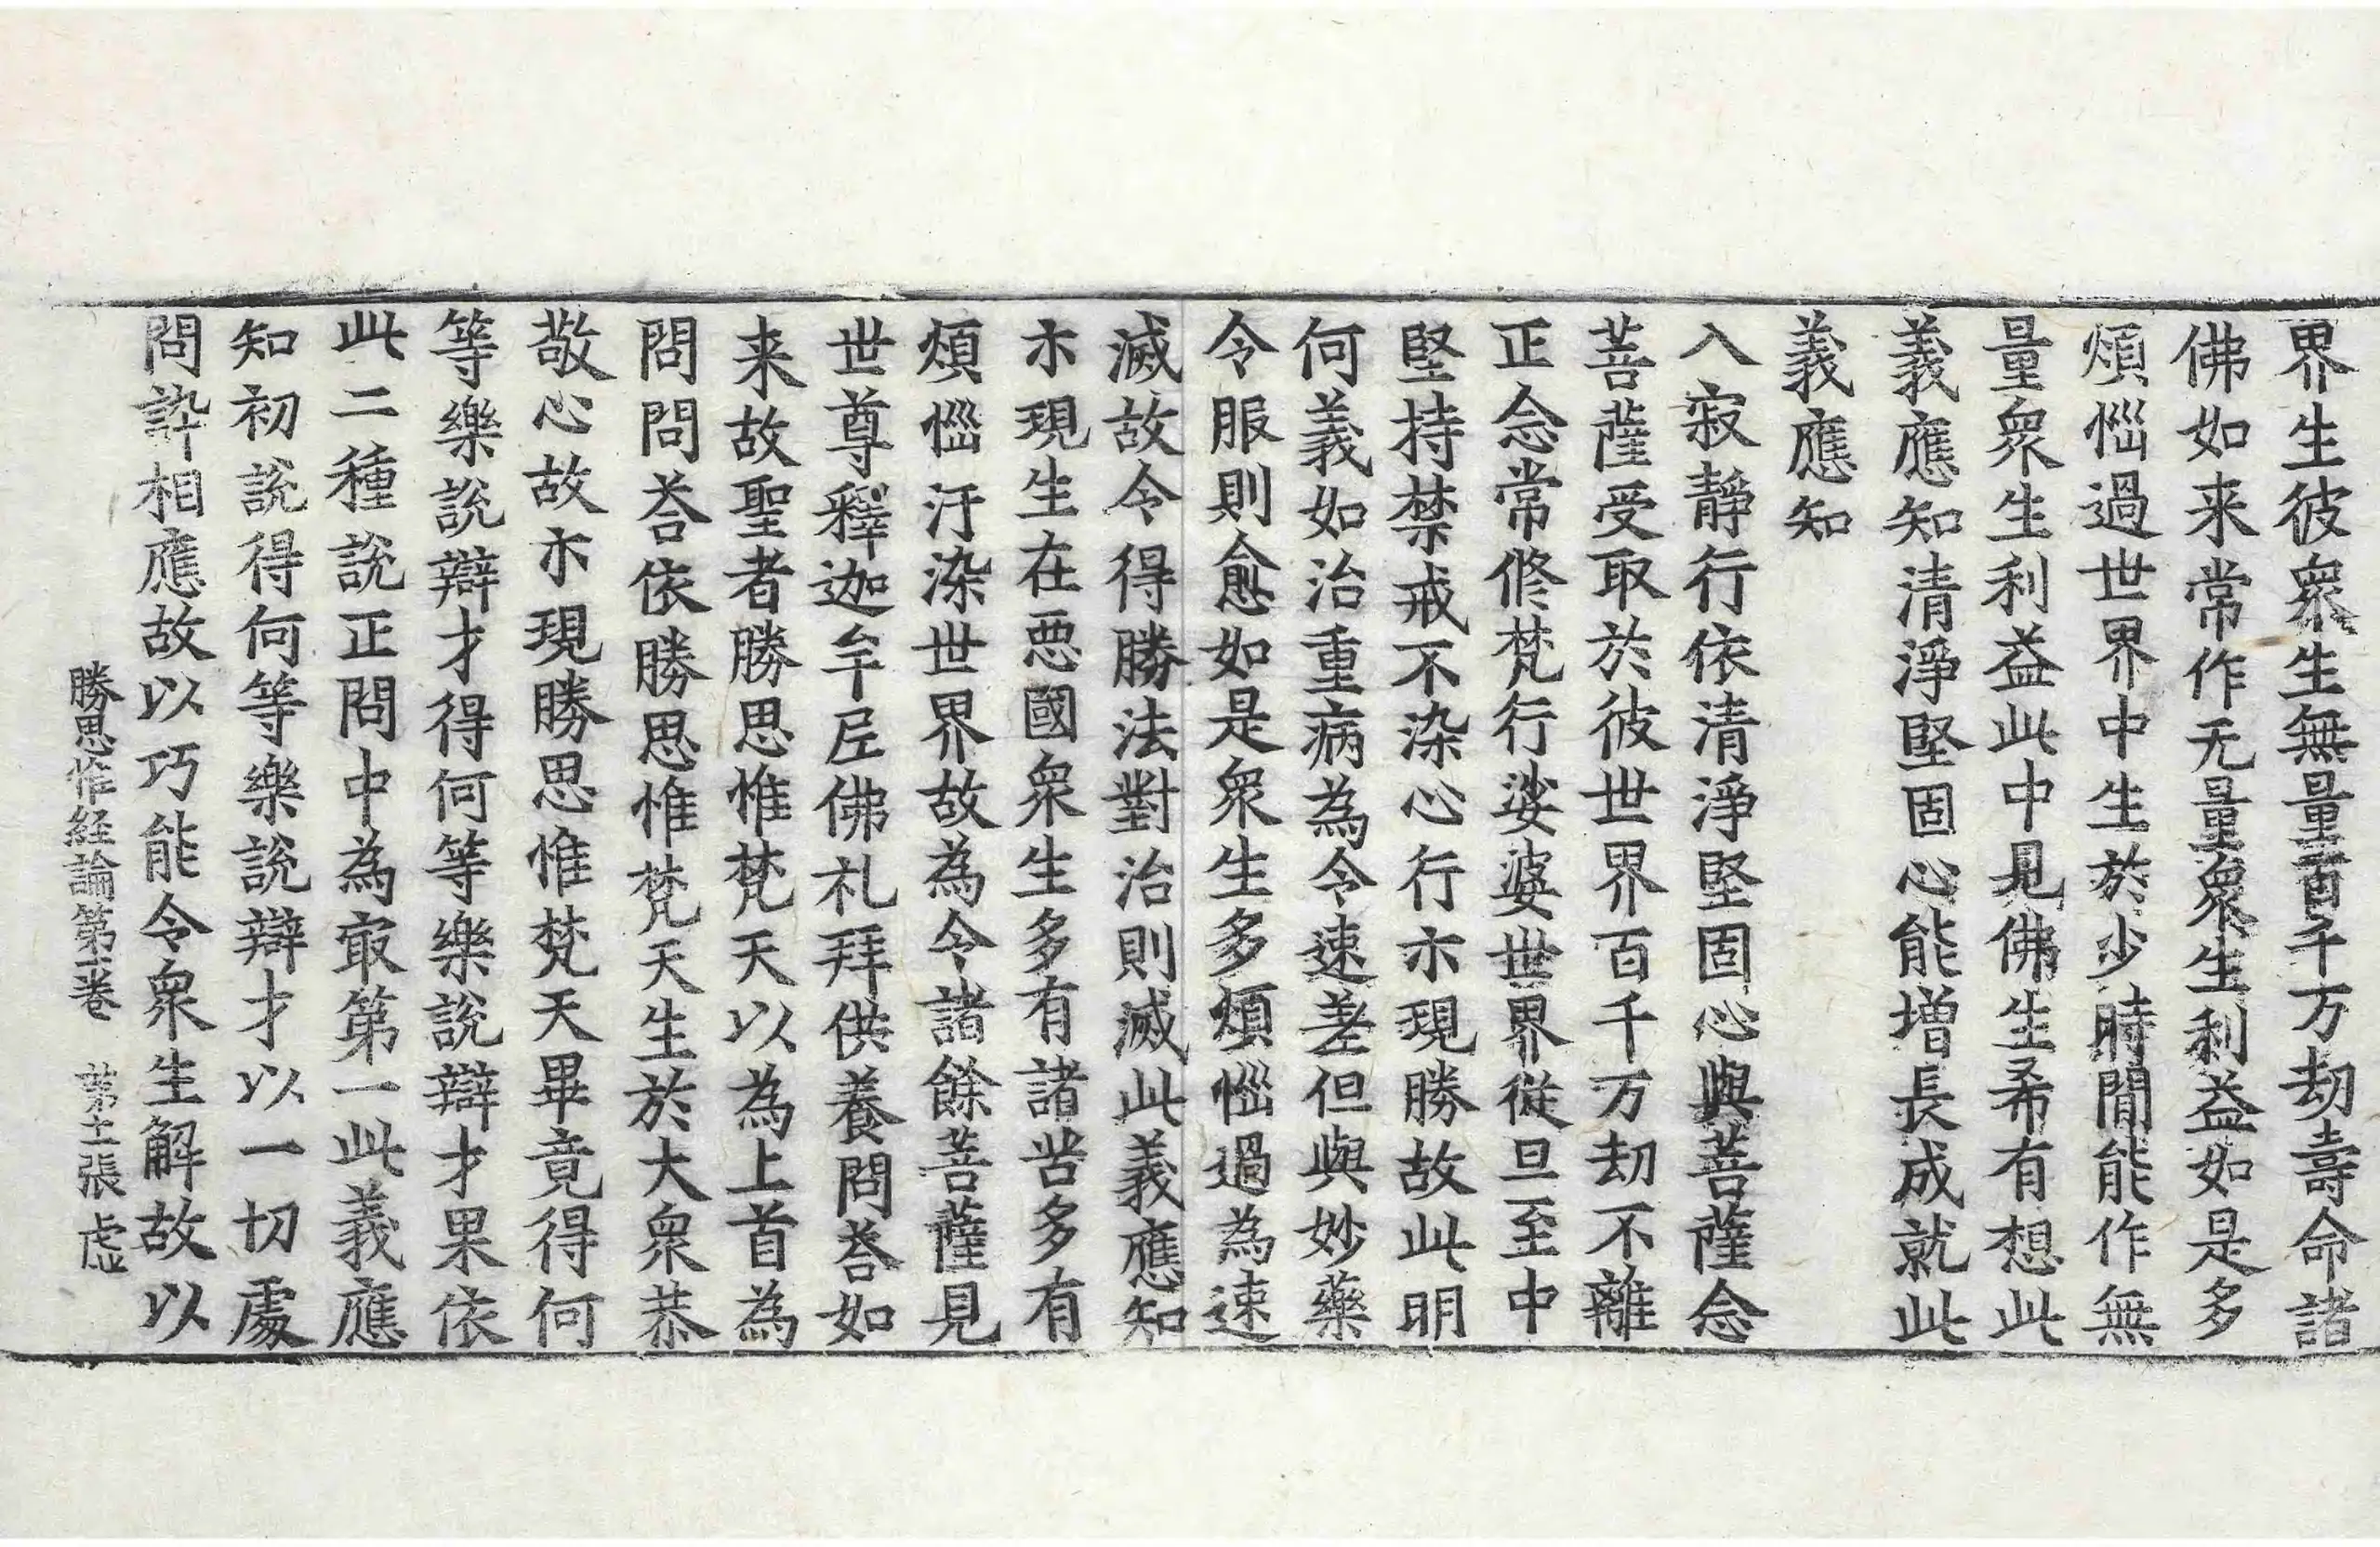 界生彼衆生無量百千万劫壽命諸
佛如来常作无量衆生利益如是多
煩惱過世界中生於少時間能作無
量衆生利益此中見佛生希有想此
義應知清淨堅固心能増長成就此
義應知
入寂靜行依清淨堅固心與菩薩念
菩薩受取於彼世界百千万劫不離
正念常修梵行娑婆世界從旦至中
堅持禁戒不染心行亦現勝故此明
何義如治重病為令速差但與妙藥
令服則愈如是衆生多煩惱過為速
滅故令得勝法對治則滅此義應知
亦現生在惡國衆生多有諸苦多有
煩惱汙染世界故為令諸餘菩薩見
世尊釋迦牟尼佛礼拜供養問荅如
来故聖者勝思惟梵天以為上首為
問問荅依勝思惟梵天生於大衆恭
敬心故亦現勝思惟梵天畢竟得何
等樂說辯才得何等樂說辯才果依
此二種說正問中為㝡第一此義應
知初說得何等樂說辯才以一切處
問許相應故以巧能令衆生解故以
勝思惟経論第一卷　第十二張　虚